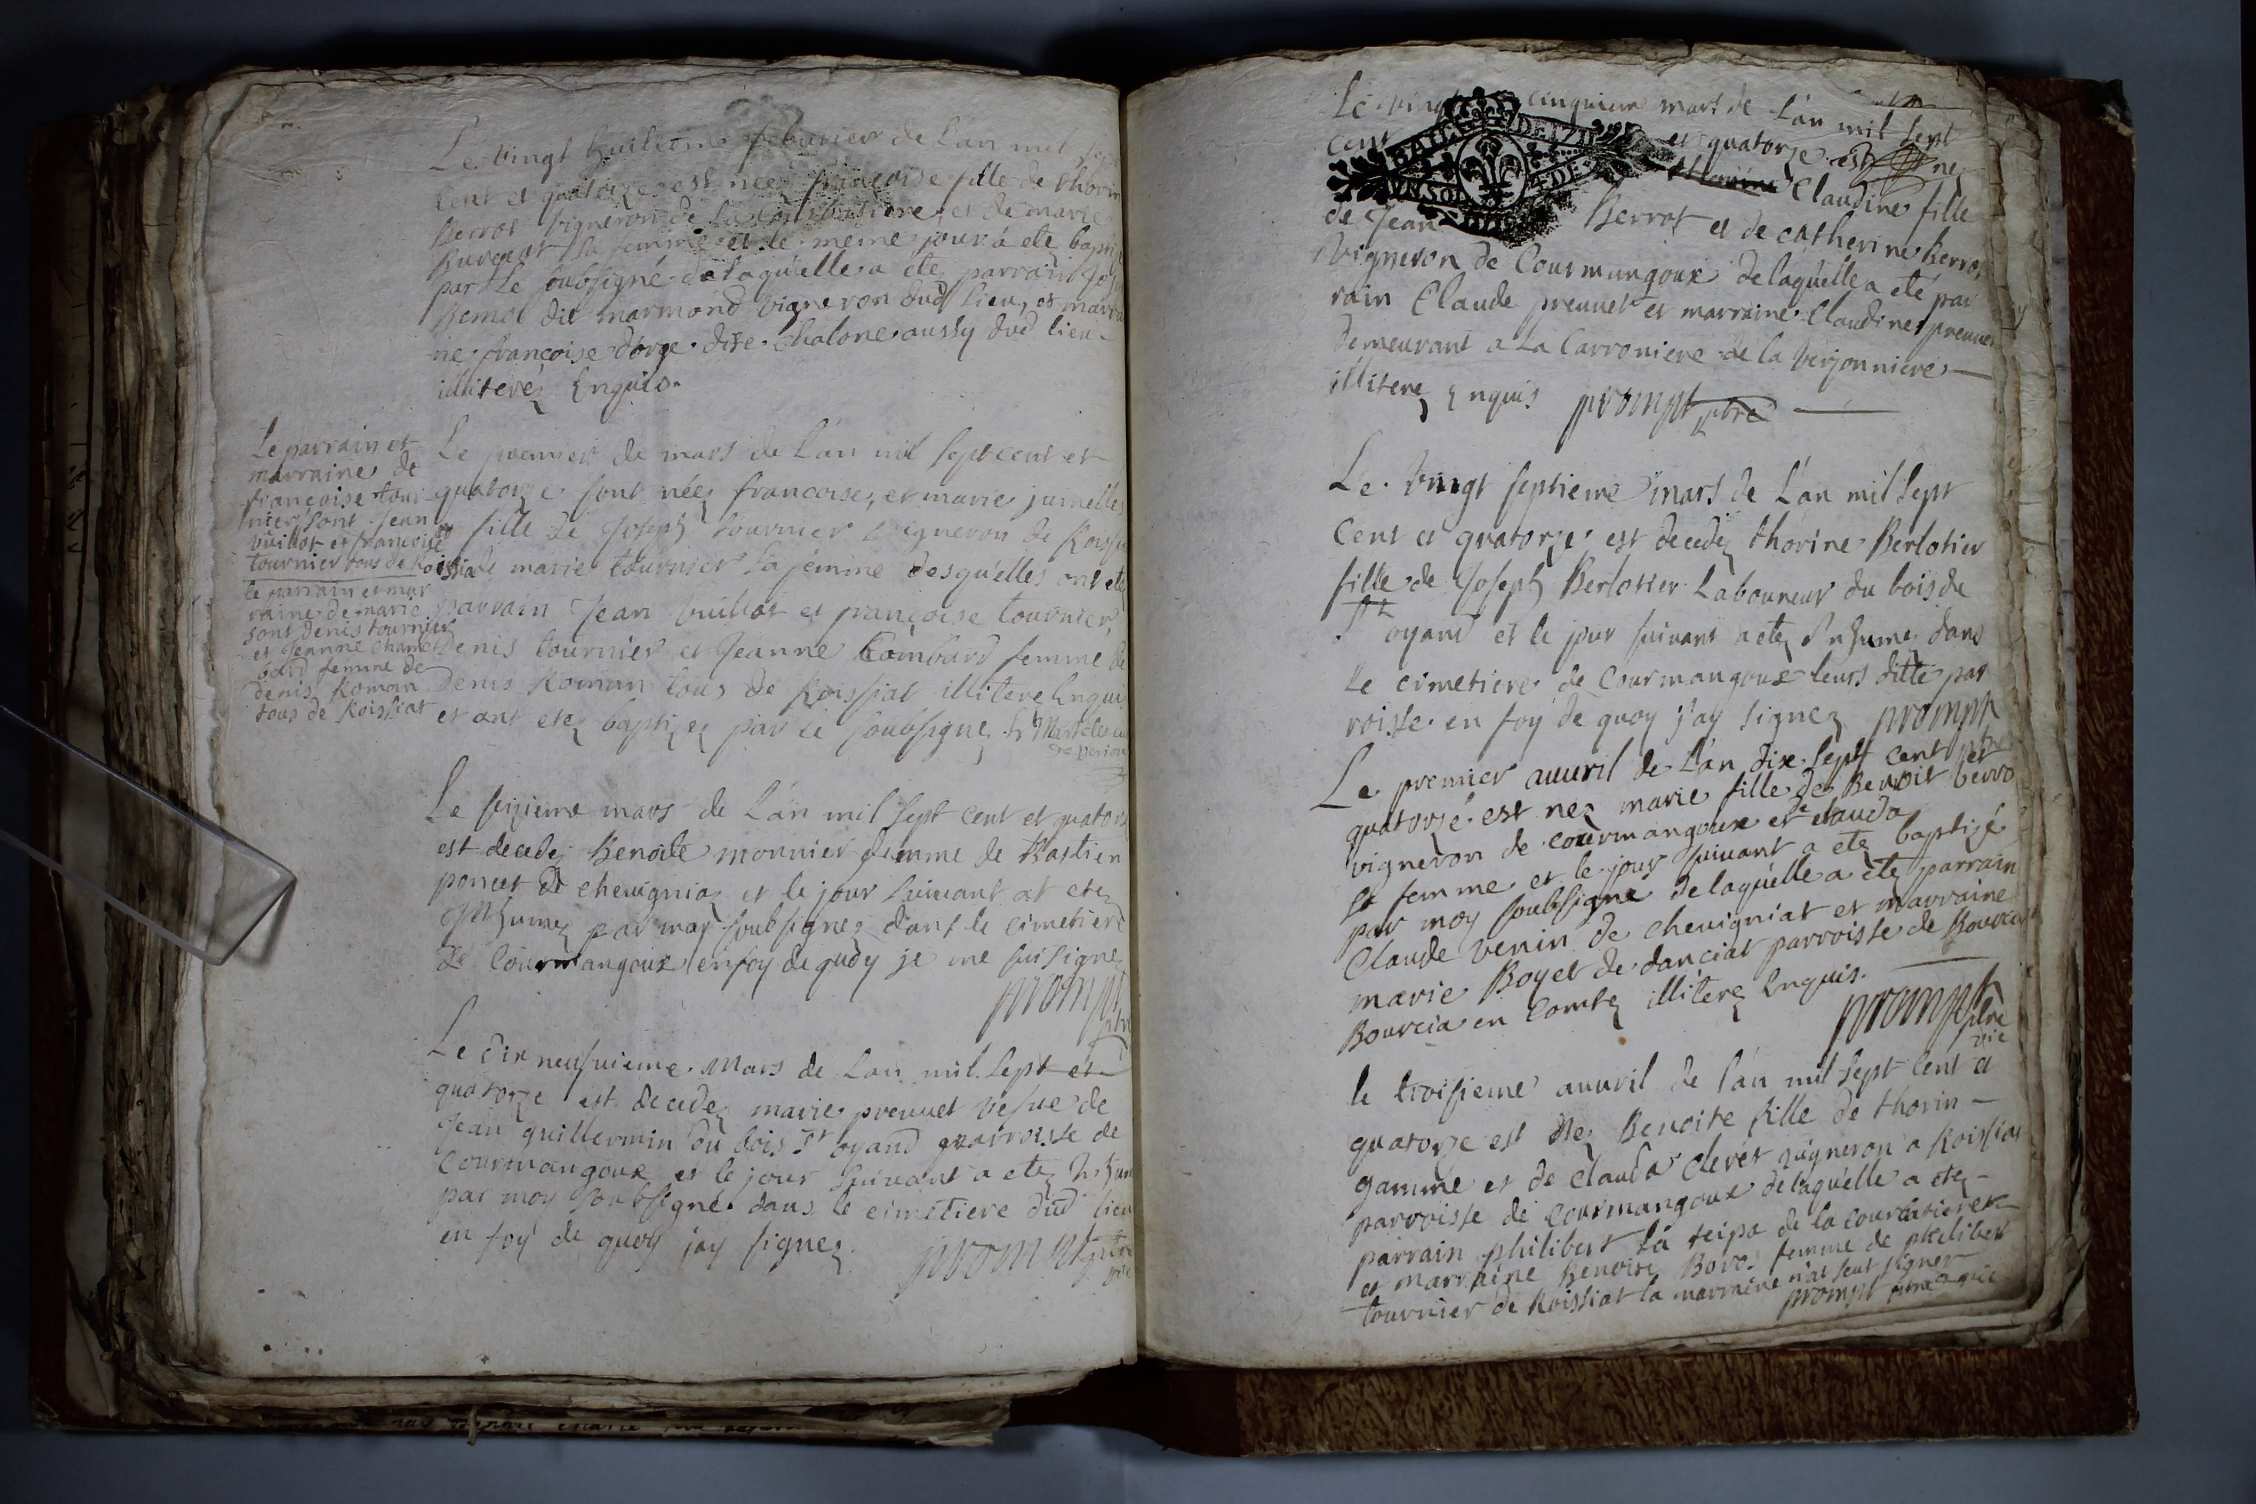 Le vingt huitieme febvrier de L'an mil sep
cent et quatorze est neez françoise fille de thorin
Berrot vigneron de la courbatiere, et de marie
Buvenot sa femme et le meme jour a ete baptiz
par Le soubsigné delaquelle a etez parrain Jos
Bemol dit marmond vigneron dud lieu, et marrai
ne françoise dorge dite Chalone aussy dud lieu
illiterez Enquis.
Le parrain et
marraine de
françoise tour
nier sont Jean
vuillot et françoise
tournier tous de Roissia
le parrain et mar
raine de marie
sont Denis tournier
et Jeanne Cham
bard femme de
denis Roman
tous de Roissiat
Le premier de mars de L'an mil sept cent et
quatorze sont néez francoise, et marie jumelles
fille de Joseph tournier vigneron de Roissi
et de marie tournier sa femme desquelles ont ete
parrain Jean vuillot et françoise tournier,
Denis tournier et Jeanne Combard femme de
Denis Roman tous de Roissiat illitere Enqui
et ont etez baptizez par le soubsigne
Le sizieme mars de L'an mil sept cent et quatorz
est decedez Benoite monnier femme de Bastien
poncet de chevignia et le jour suivant at etez
Inhumez par moy soubsignez dans le cimetiere
de Courmangoux en foy de quoy je me suis signe
prompt
ptre
Le dix neufvieme Mars de Lan mil Sept et
quatorze est decedez marie preuuet vefve de
Jean guillermin du bois St oyand parroisse de
Courmangoux et le jour suivant a etez Inhum
par moy soubsigné dans le cimetiere dud lieu
en foy de quoy jay signez prompt ptre
vic
Le vingt cinquieme mars de L'an mil sept
cent et quatorze est nee
Claudine fille
de Jean Berrot et de catherine Berrot
vigneron de Courmangoux delaquelle a eté par
rain Claude preuuet et marraine Claudine preuuet
demeurant a La Carroniere de la verjonniere
illiterez Enquis prompt ptre
Le vingt septieme mars de L'an mil sept
cent et quatorze est decedez thorine Berlotier
fille de Joseph Berlotier Laboureur du bois de
St oyand et le jour suivant a etez Inhumez dans
Le cimetiere de Courmangoux leurs ditte par
roisse en foy de quoy j'ay signez prompt
ptre
Le premier auuril de L'an dix sept cent et
quatorze est nez marie fille de Benoit berro
vigneron de courmangoux et de clauda
sa femme et le jour suivant a etez baptizé
par moy soubsigne delaquelle a etez parrain
Claude venin de chevigniat et marraine
marie Boyet de danciat parroisse de Bourcia
Bourcia en Comtez illiterez Enquis.
prompt ptre
vic
le troisieme auuril de l'an mil sept cent et
quatorze est nez Benoite fille de thorin
gamme et de clauda Cleret vigneron a Roissiat
parroisse de Courmangoux delaquelle a etez
parrain philibert La teipa de la courbatiere
et marraine Benoite Boro femme de philibert
tournier de Roissiat la marraine n'at sceut signer
prompt ptre vic